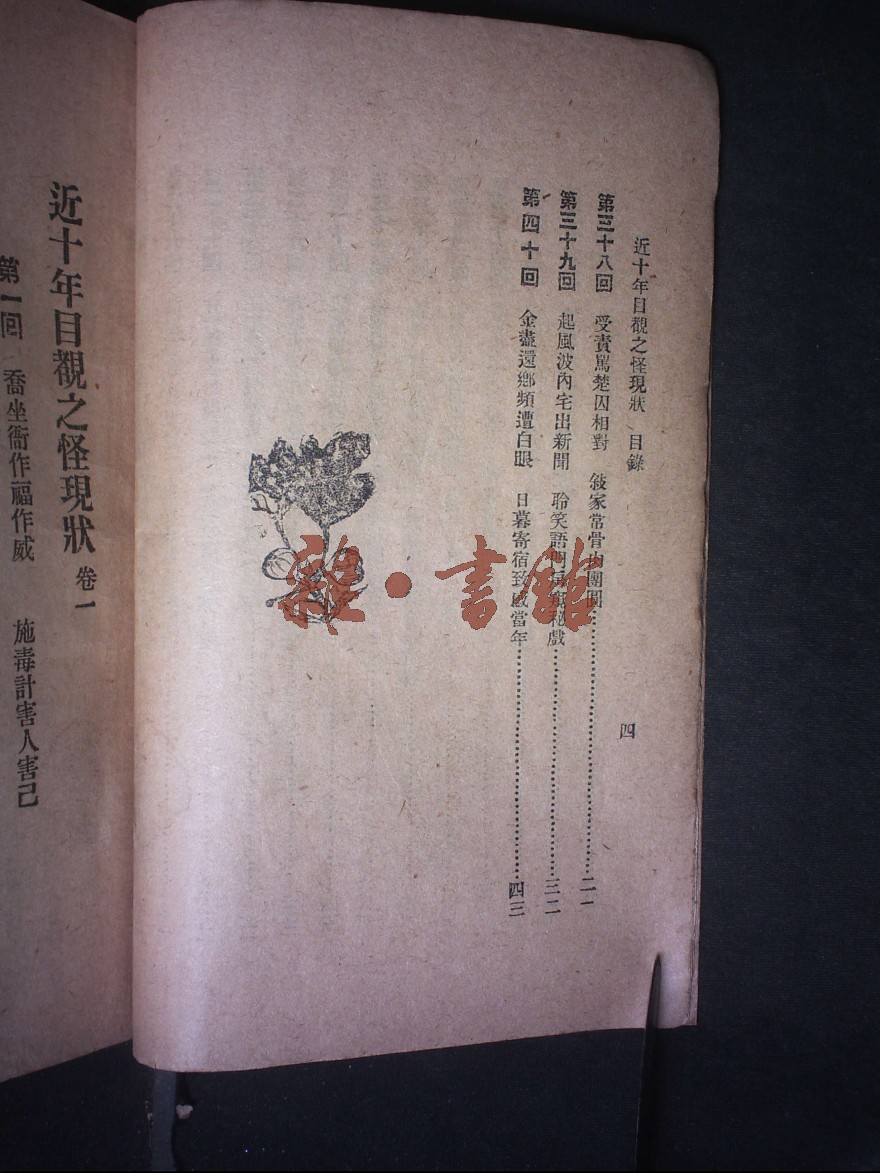 近十年目覩之怪現狀　目錄
四
第三十八回　受責罵楚囚相對　敍家常骨肉團圓…………二一
第三十九回　起風波內宅出新聞　聆笑語明窺祕戲…………三二
第四十回　金盡還鄉頻遭白眼　日暮寄宿致感當年…………四三
近十年目覩之怪現狀　卷一
第一回　喬坐衙作福作威　施毒計害人害己
雜·書館